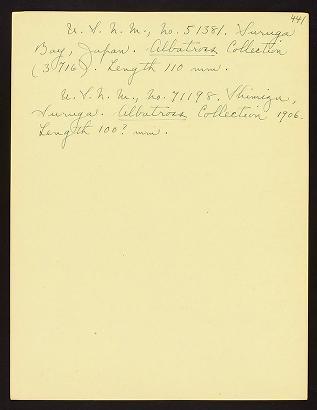 441
U. S. N. M., No. 51381. Suruga
Bay, Japan. Albatross Collection
(3716). Length 110 mm.
U. S. N. M., No. 71198. Shimizu,
Suruga. Albatross Collection 1906.
Length 100? mm.